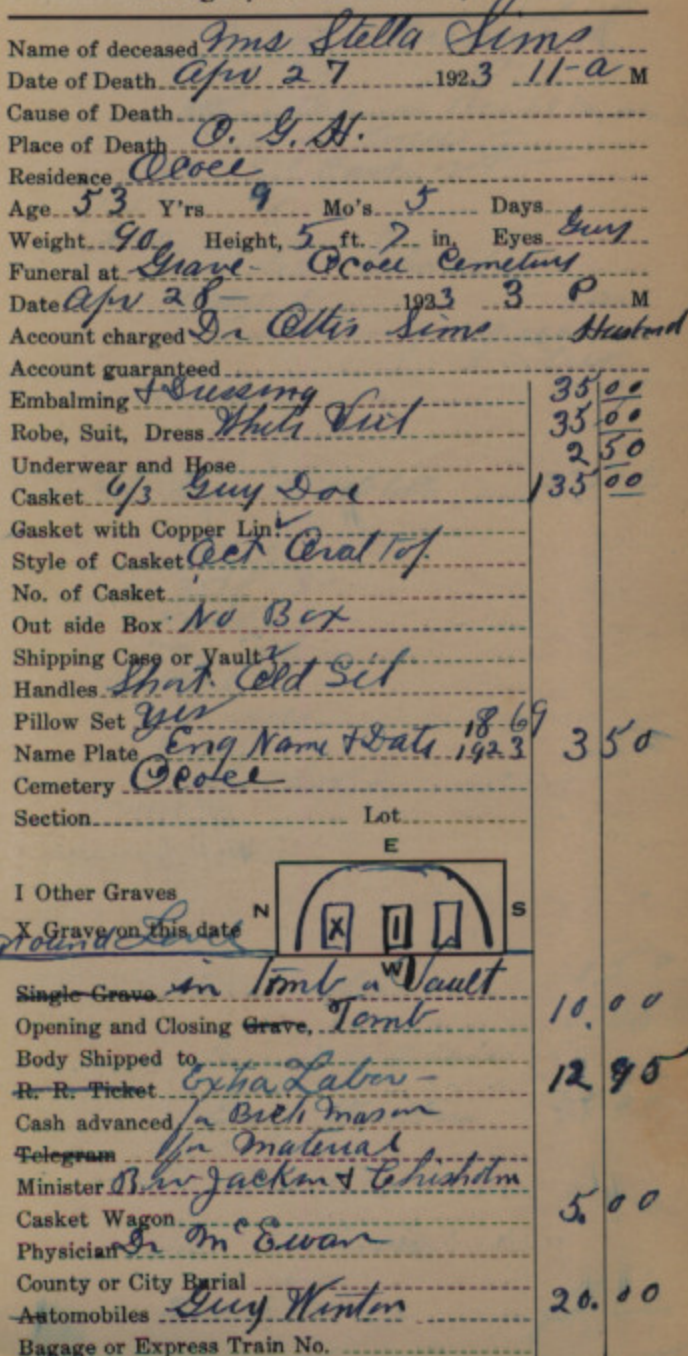 Name of deceased Mrs Stella Sims
Date of Death Apr 27 1923 11-a M
Cause of Death
Place of Death O. G. H.
Residence Ocoee
Age 53 Y'rs 9 Mo's 5 Days
Weight 90 Height, 5 ft. 7 in. Eyes Grey
Funeral at Grave- Ocoee Cemetery
Date Apr 28- 1923 3 P M
Account charged Dr Ottis Sims Husband
Account guaranteed
Embalming & Dressing 35 00
Robe, Suit, Dress White 35 00
Underwear and Hose 2 50
Casket 6/3 Grey Doe 135 00
Gasket with Copper Lin.
Style of Casket Oct Oval Top
No. of Casket
Out side Box No Box
Shipping Case or Vault
Handles Short Old Sil
Pillow Set yes 1869
Name Plate Eng Name & Date 1923 3 50
Cemetery Ocoee
Section Lot
E
I Other Graves
N X I S
X Grave on this date
Ground Level
W
Single Grave in Tomb or Vault
Opening and Closing Grave, Tomb 10.00
Body Shipped to
R. R. Ticket Extra Labor- 12 95
Cash advanced for Brick Mason
Telegram for Material
Minister B W Jackson & Chisholm
Casket Wagon 5.00
Physician Dr McEwan
County or City Burial
Automobiles Grey Winton 20.00
Bagage or Express Train No.